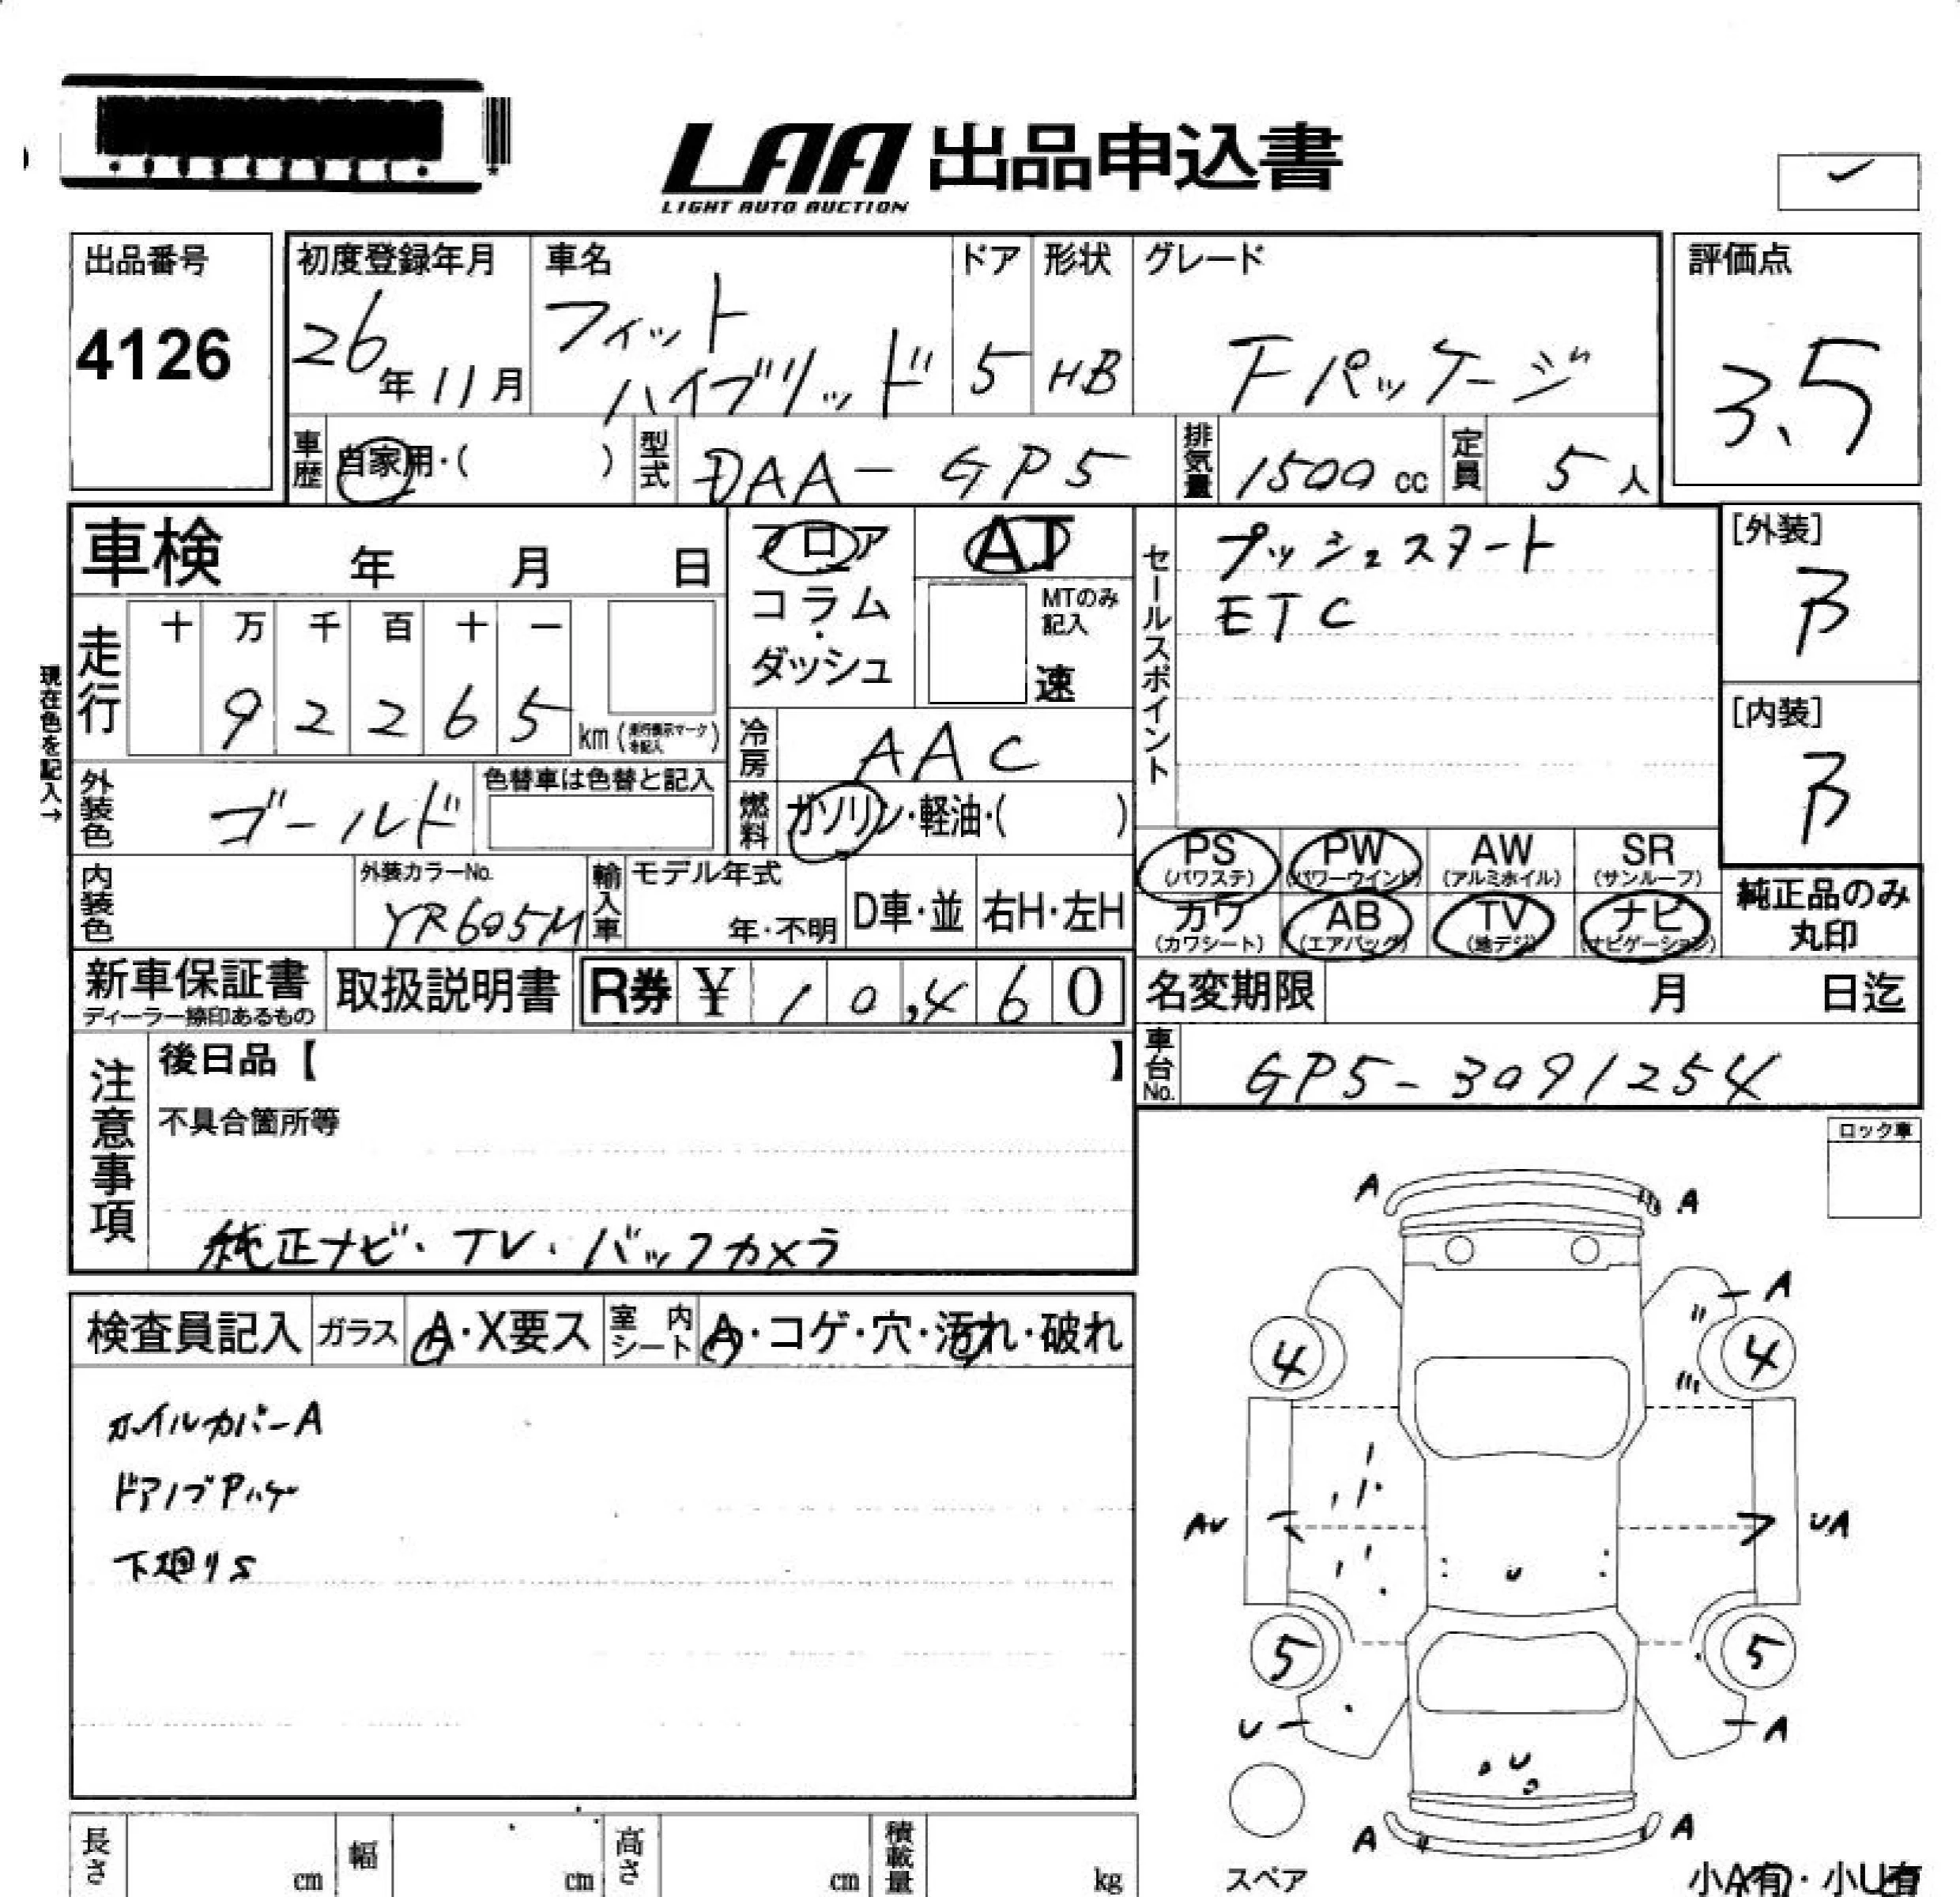 LAA 出品申込書
LIGHT AUTO AUCTION
出品番号
4126
初度登録年月
26年11月
車名
フィット
ハイブリッド
ドア
5
形状
HB
グレード
Fパッケージ
評価点
3.5
車歴 自家用・( )
型式 DAA-GP5
排気量 1500cc
定員 5人
車検 年 月 日
フロア
コラム
・
ダッシュ
AT
MTのみ
記入
速
セールスポイント
プッシュスタート
ETC
[外装]
B
[内装]
B
現在色を記入→
走行
十 万 千 百 十 一
9 2 2 6 5 km
冷房 AAC
外装色 ゴールド
色替車は色替と記入
燃料 ガソリン・軽油・( )
PS PW AW SR
(パワステ) (パワーウインド) (アルミホイル) (サンルーフ)
カワ AB TV ナビ
(カワシート) (エアバッグ) (地デジ) (ナビゲーション)
純正品のみ
丸印
内装色
外装カラーNo.
YR605M
輸入車
モデル年式
年・不明
D車・並
右H・左H
新車保証書
ディーラー捺印あるもの
取扱説明書
R券 ¥ 10,460
名変期限 月 日迄
車台No. GP5-3091254
注意事項
後日品【 】
不具合箇所等
純正ナビ・TV・バックカメラ
ロック車
検査員記入
ガラス A・X要ス
室内シート A・コゲ・穴・汚れ・破れ
ホイルカバーA
ドアノブPハゲ
下廻りS
A A
A
4 4
AU UA
U
5 5
U A
U
A A
スペア
小A有・小U有
長さ cm
幅 cm
高さ cm
積載量 kg